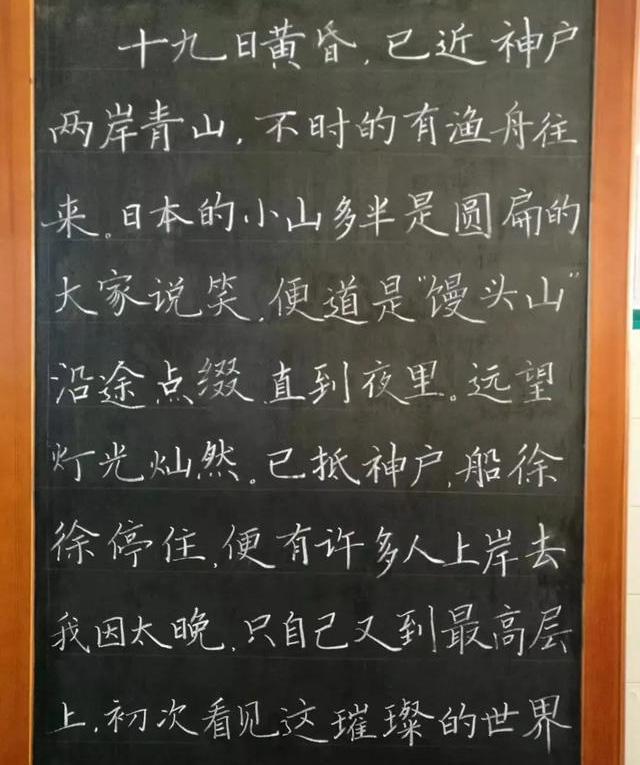 十九日黄昏,已近神户
两岸青山,不时的有渔舟往
来。日本的小山多半是圆扁的
大家说笑,便道是“馒头山”
沿途点缀,直到夜里。远望
灯光灿然。已抵神户,船徐
徐停住,便有许多人上岸去
我因太晚,只自己又到最高层
上,初次看见这璀璨的世界